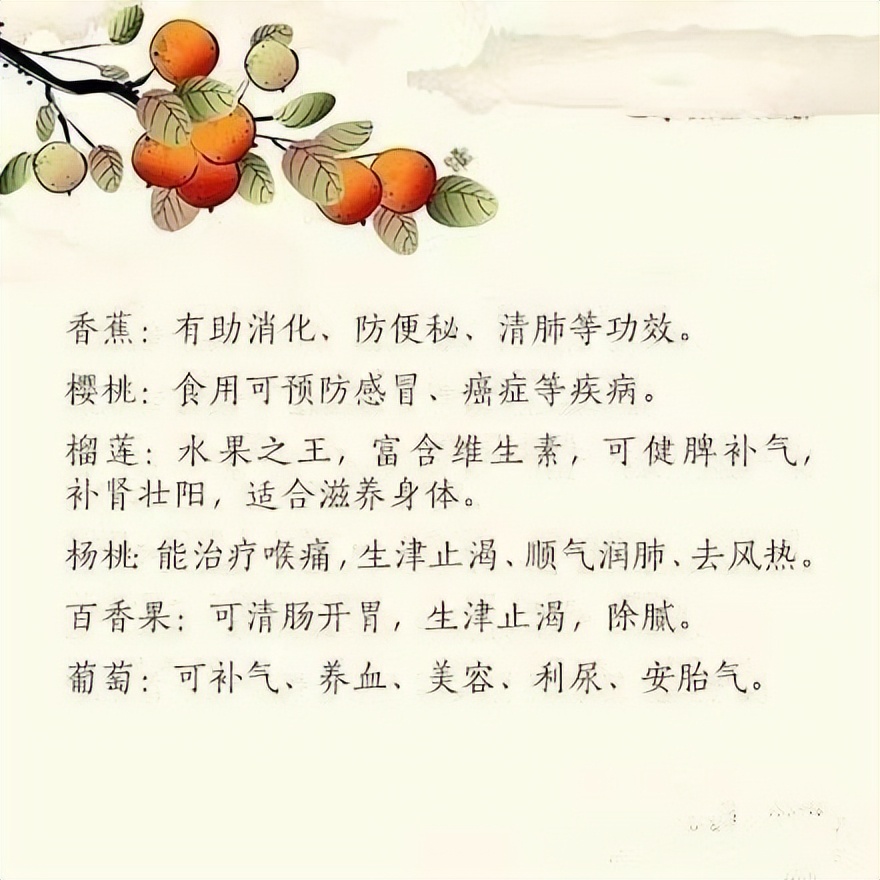 香蕉：有助消化、防便秘、清肺等功效。
樱桃：食用可预防感冒、癌症等疾病。
榴莲：水果之王，富含维生素，可健脾补气，
补肾壮阳，适合滋养身体。
杨桃：能治疗喉痛，生津止渴、顺气润肺、去风热。
百香果：可清肠开胃，生津止渴，除腻。
葡萄：可补气、养血、美容、利尿、安胎气。